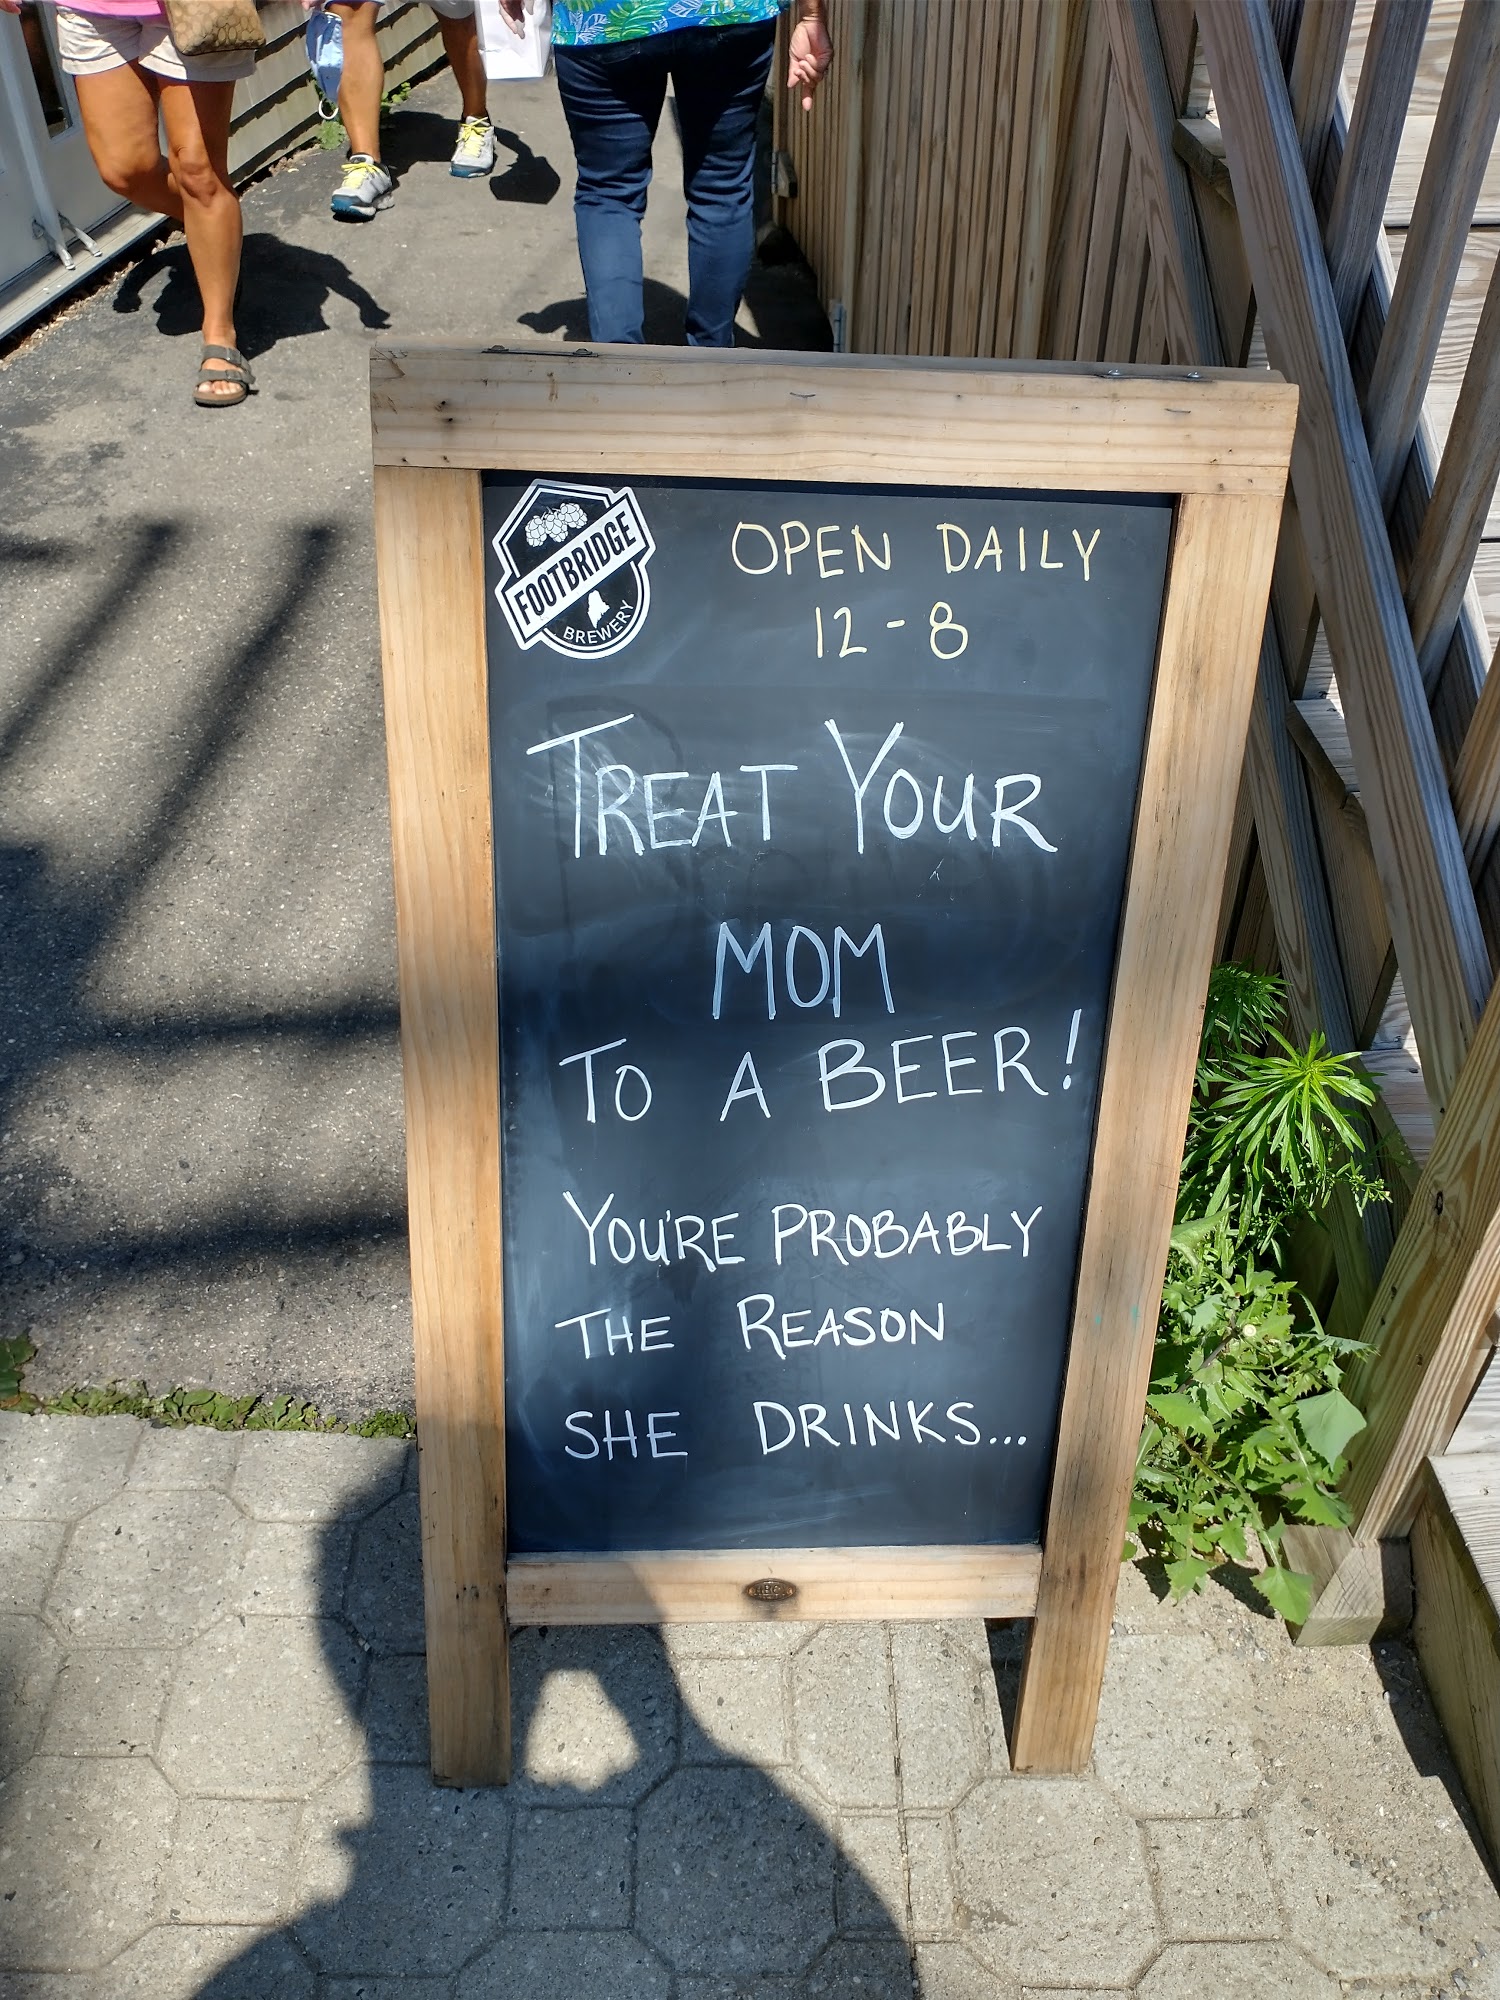 FOOTBRIDGE
BREWERY
OPEN DAILY
12-8
TREAT YOUR
MOM
TO A BEER!
YOU'RE PROBABLY
THE REASON
SHE DRINKS...